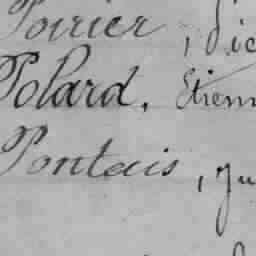 Poirier, Vic
Polard. Etienn
Pontais, Ju